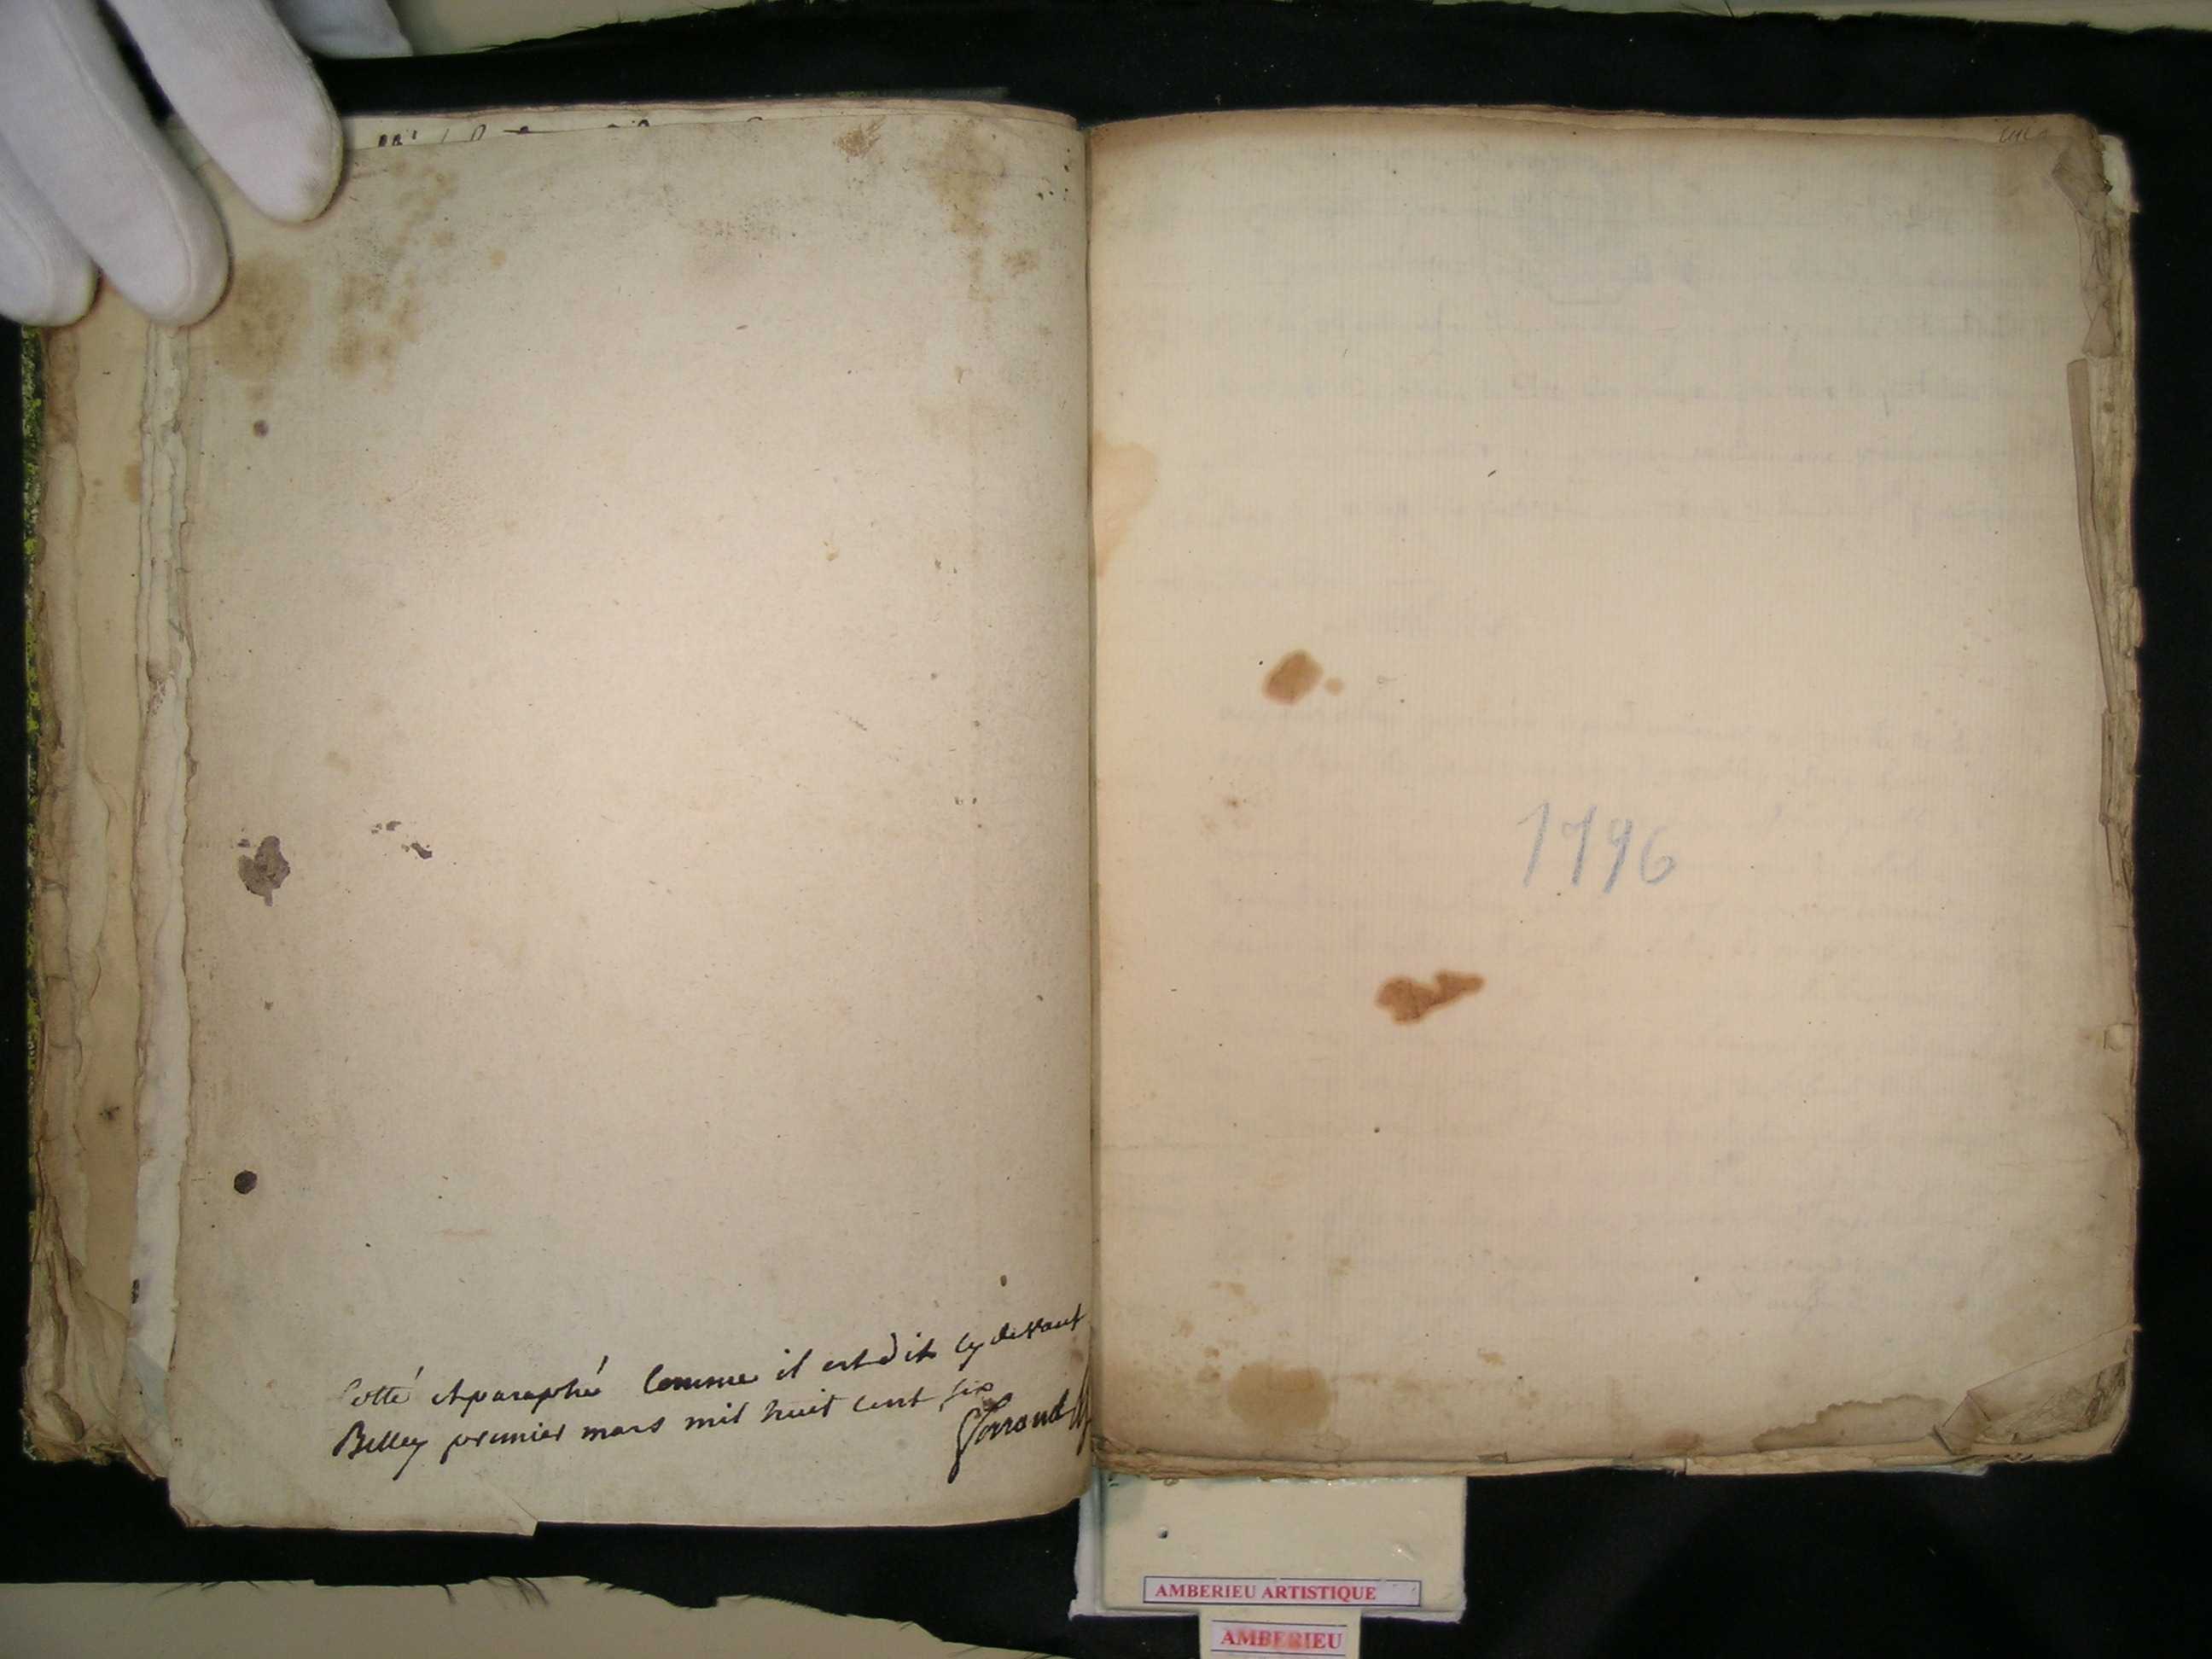 Cotté et paraphé Comme il est dit cy devant
Belley premier mars mil huit cent six
1796
AMBERIEU ARTISTIQUE
AMBERIEU